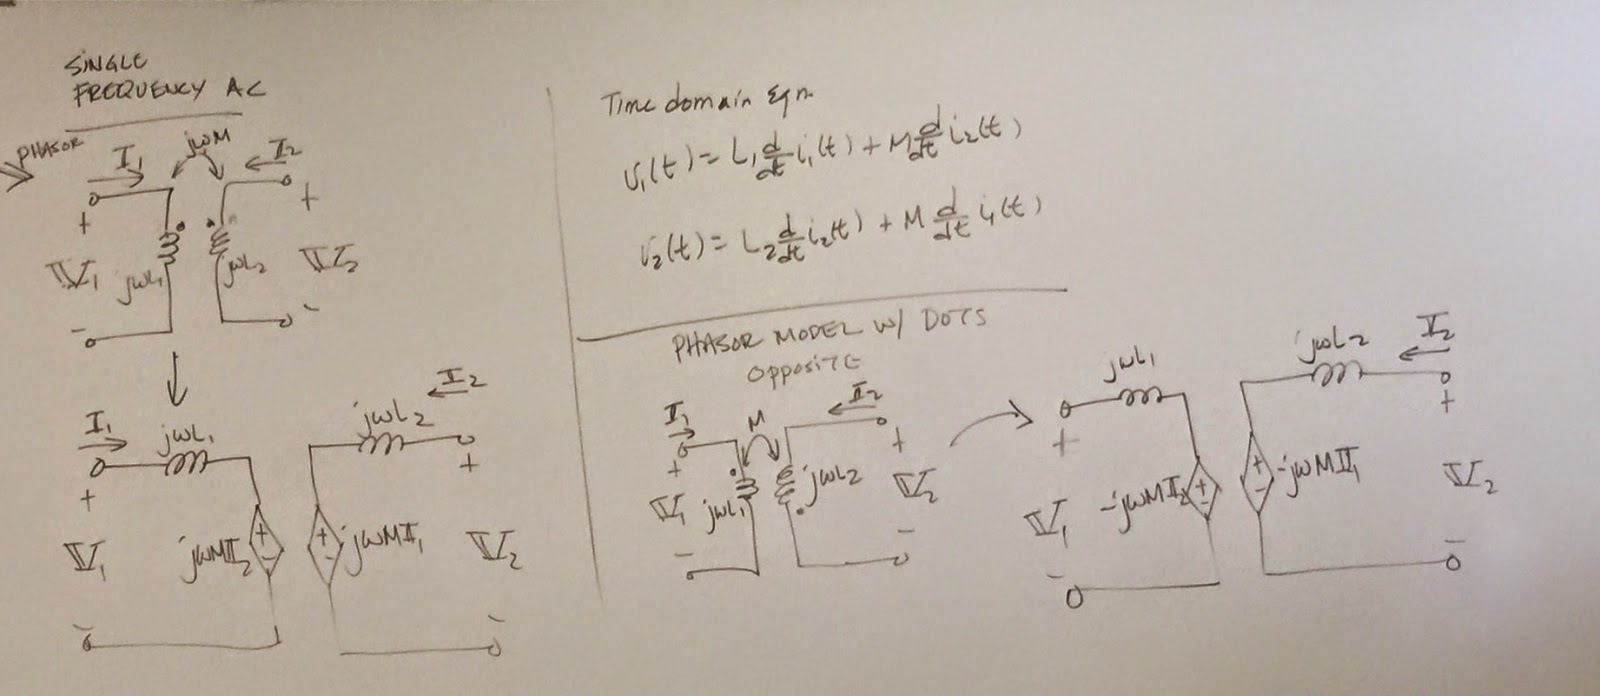 SINGLE
FREQUENCY AC
PHASOR
I₁
jωM
I₂
+
+
V₁
jωL₁
jωL₂
V₂
-
-
I₁
jωL₁
jωL₂
I₂
+
+
V₁
jωMI₂
+
-
+
-
jωMI₁
V₂
-
-
Time domain Eqn.
v₁(t) = L₁ d/dt i₁(t) + M d/dt i₂(t)
v₂(t) = L₂ d/dt i₂(t) + M d/dt i₁(t)
PHASOR MODEL W/ DOTS
OPPOSITE
I₁
M
I₂
+
+
V₁
jωL₁
jωL₂
V₂
-
-
jωL₁
jωL₂
I₂
+
+
V₁
-jωMI₂
+
-
+
-
-jωMI₁
V₂
-
-